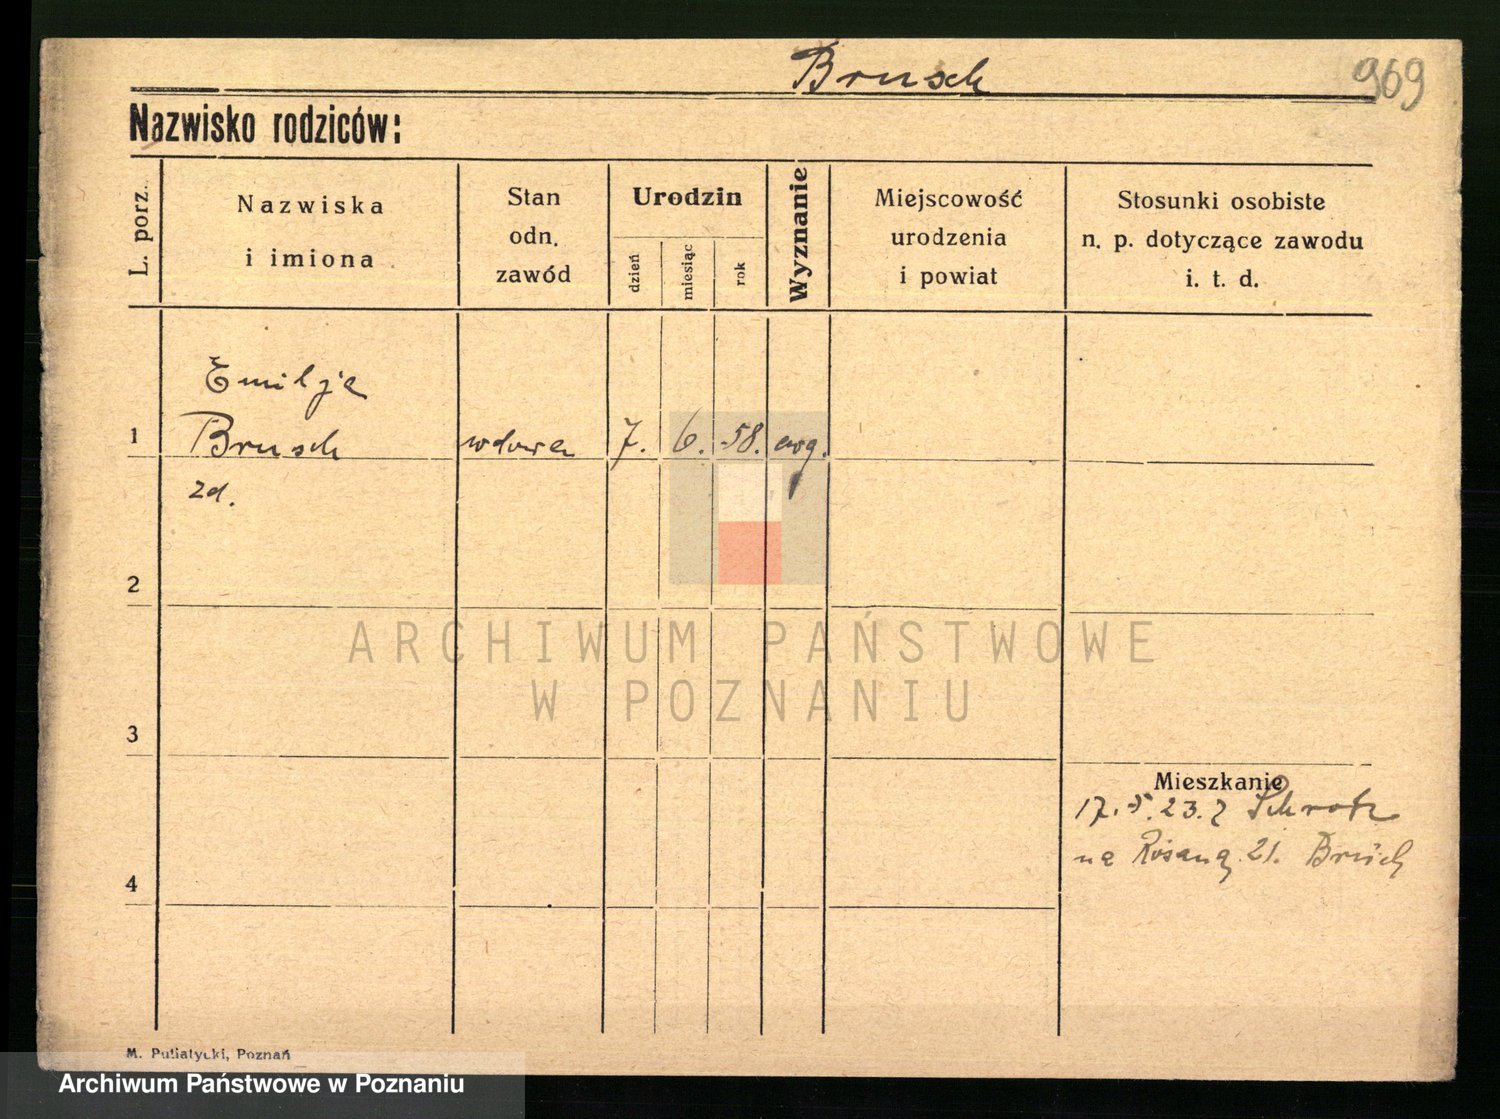 Brusch
969
Nazwisko rodziców:
L. porz.
Nazwiska
i imiona
Stan
odn.
zawód
Urodzin
dzień
miesiąc
rok
Wyznanie
Miejscowość
urodzenia
i powiat
Stosunki osobiste
n. p. dotyczące zawodu
i. t. d.
Emilja
1 Brusch wdowa 7. 6. 58. ewg.
zd.
2
ARCHIWUM PAŃSTWOWE
W POZNANIU
3
Mieszkanie
17. 5. 23. z
na 21. Brüch
4
M. Putiatycki, Poznań
Archiwum Państwowe w Poznaniu